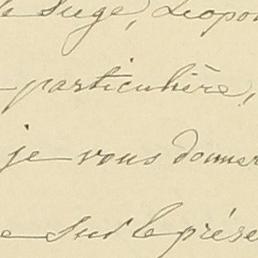 Siège, Léopol
particulière,
je vous donner
sur le prése